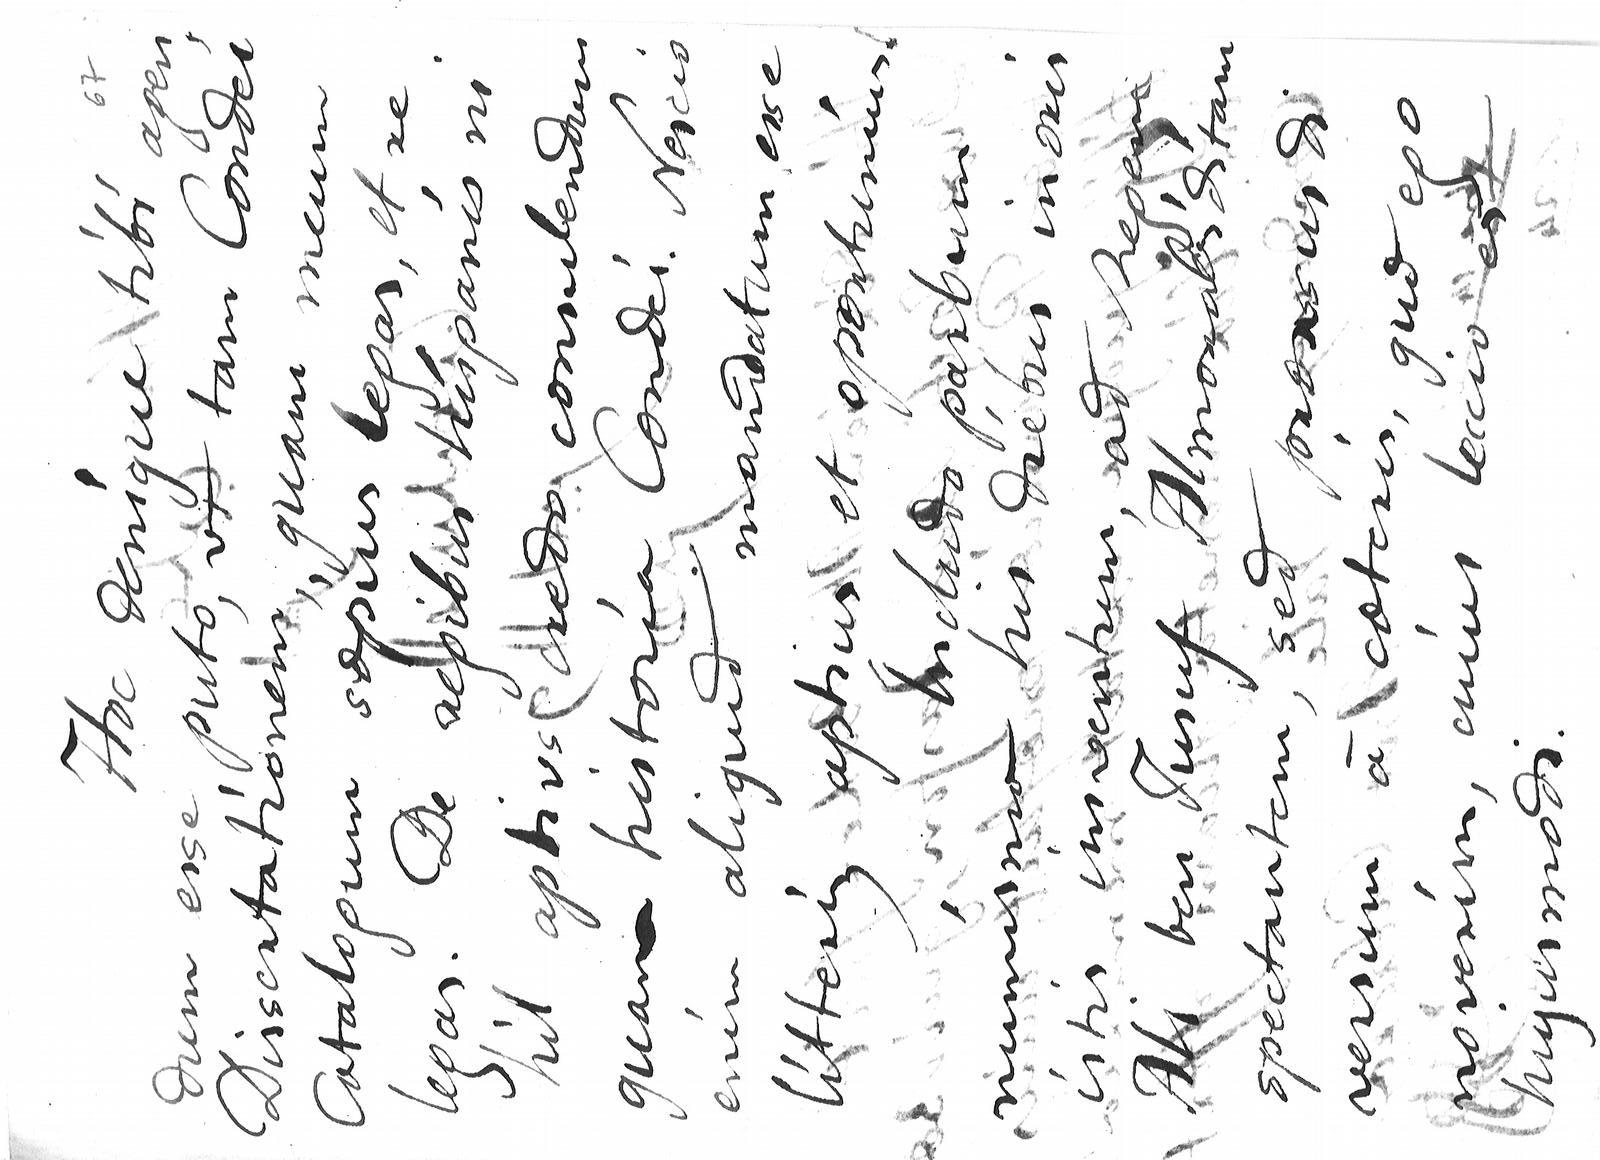 67
Hoc denique tibi agen,
dum esse puto, vt tam Condei
Dissertationem, quam meum
Catalogum sæpius legas, et re
legas. De regibus hispanis ni
hil aptius credo consulendum
quam historia Condei. Nescio
enim aliquid mandatum esse
litteris aptius et oportunius.
Includo parbum
numisma his diebus in oris
istis inventum, ad Regem
Ali ben Jusuf Almorabiditam
spectantem, sed prorsus di
versum à cæteris, quod ego
noverim, cuius leccio est
hujusmodi.